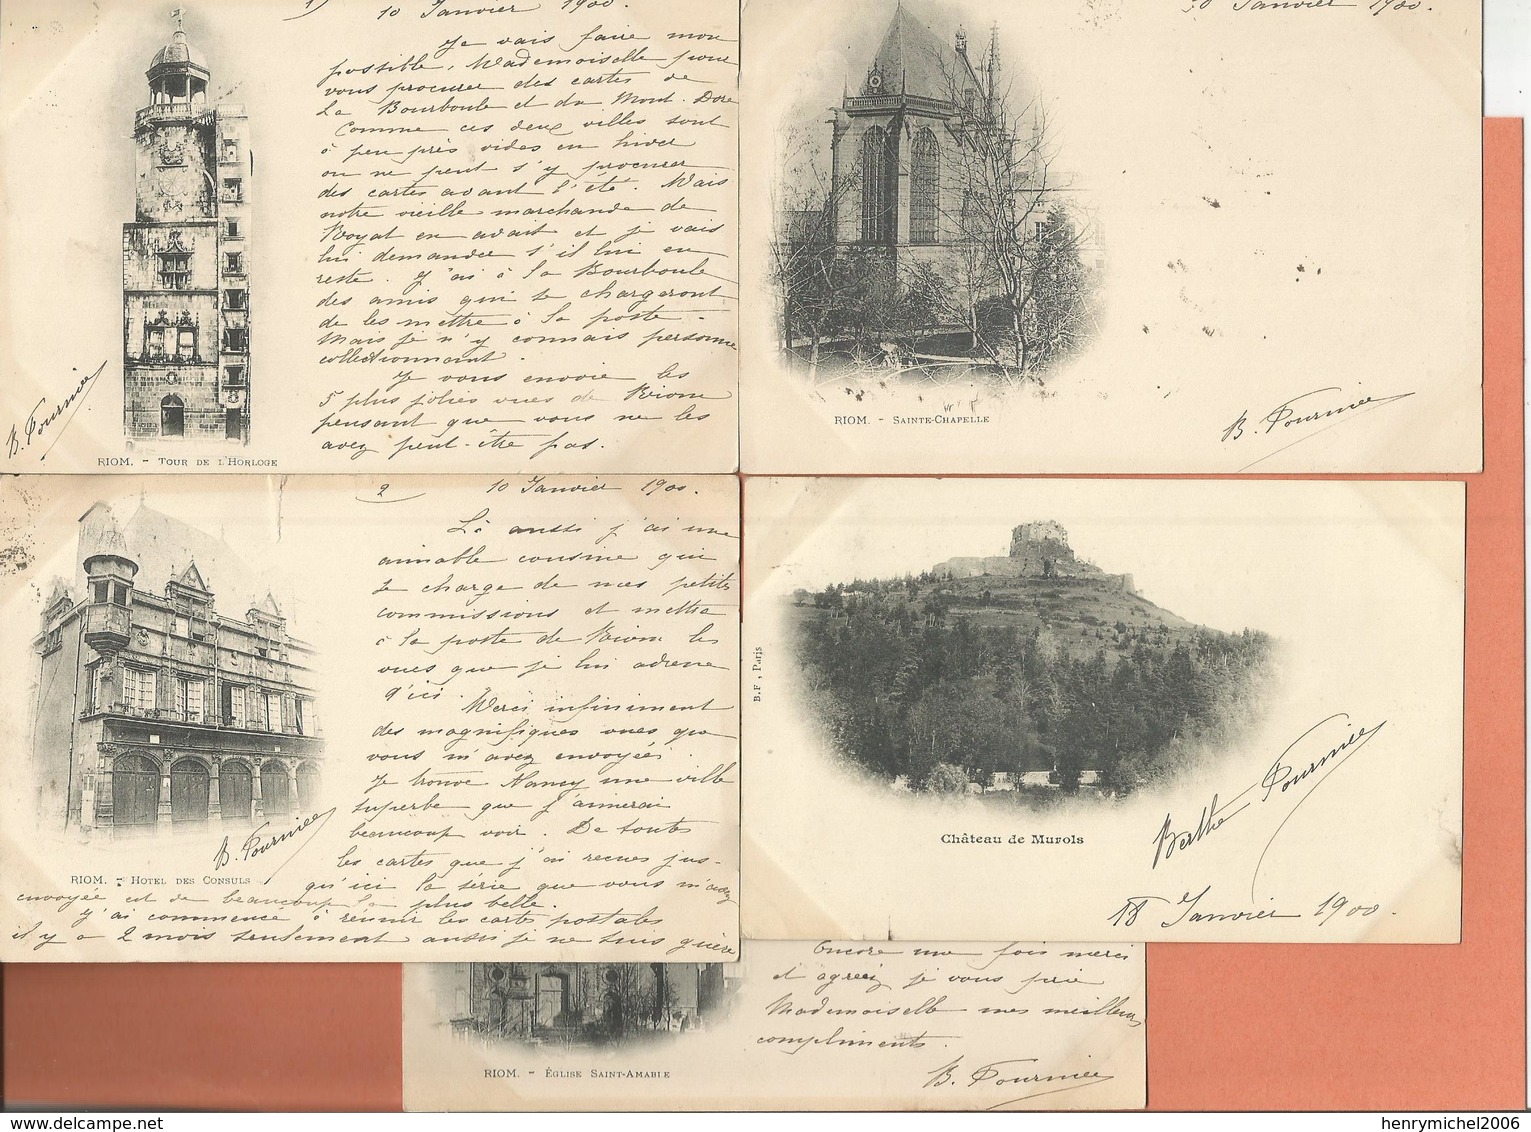 1) 10 Janvier 1900.
Je vais faire mon
possible, Mademoiselle pour
vous procurer des cartes de
La Bourboule et du Mont-Dore
Comme ces deux villes sont
à peu près vides en hiver
on ne peut s'y procurer
des cartes avant l'été. Mais
notre vieille marchande de
Royat en avait et je vais
lui demander s'il lui en
reste. J'ai à La Bourboule
des amis qui se chargeront
de les mettre à la poste.
Mais je n'y connais personne
collectionnant.
Je vous envoie les
5 plus jolies vues de Riom
pensant que vous ne les
avez peut-être pas.
B. Fournier
RIOM. - TOUR DE L'HORLOGE
10 Janvier 1900.
RIOM. - SAINTE-CHAPELLE
B. Fournier
2 10 Janvier 1900.
Là aussi j'ai une
aimable cousine qui
se charge de mes petites
commissions et mettra
à la poste de Riom les
vues que je lui adresse
d'ici.
Merci infiniment
des magnifiques vues que
vous m'avez envoyées.
Je trouve Nancy une ville
superbe que j'aimerai
beaucoup voir. De toutes
les cartes que j'ai reçues jus-
qu'ici la série que vous m'avez
envoyée est de beaucoup la plus belle.
J'ai commencé à réunir les cartes postales
il y a 2 mois seulement aussi je ne suis guère
B. Fournier
RIOM. - HOTEL DES CONSULS
B.F., Paris
Château de Murols
Berthe Fournier
18 Janvier 1900.
Encore une fois merci
et agréez je vous prie
Mademoiselle mes meilleurs
compliments.
B. Fournier
RIOM. - ÉGLISE SAINT-AMABLE
www.delcampe.net
henrymichel2006